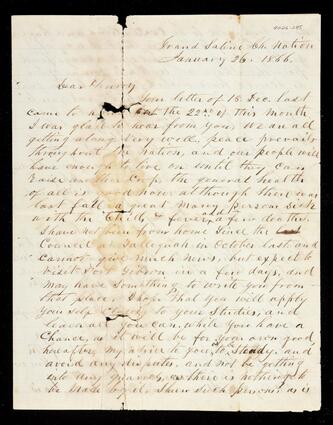 Grand Saline Ch. Nation
January 26. 1866.
Dear
Your letter of 18 Dec. last
came to hand the 22nd of this month
I was glad to hear from you, we are all
getting along very well, peace prevails
throughout the nation, and our people will
have enough to live on until they can
raise another crop, the general health
of all is good now although there was
last fall a great many persons sick
with the Chills & fever, and a few deaths.
I have not been from home since the
Council at Tallequah in October last, and
cannot give much news, but expect to
visit Fort Gibson in a few days, and
may have something to write you from
that place, I hope that you will apply
your self closely to your studies, and
learn all you can, while you have a
chance, as it will be for your own good
hereafter, my advice to you, is to be Steady, and
avoid any disputes, and not be getting
into any quarrels, as there is nothing to
be made by it, Shun such persons as is